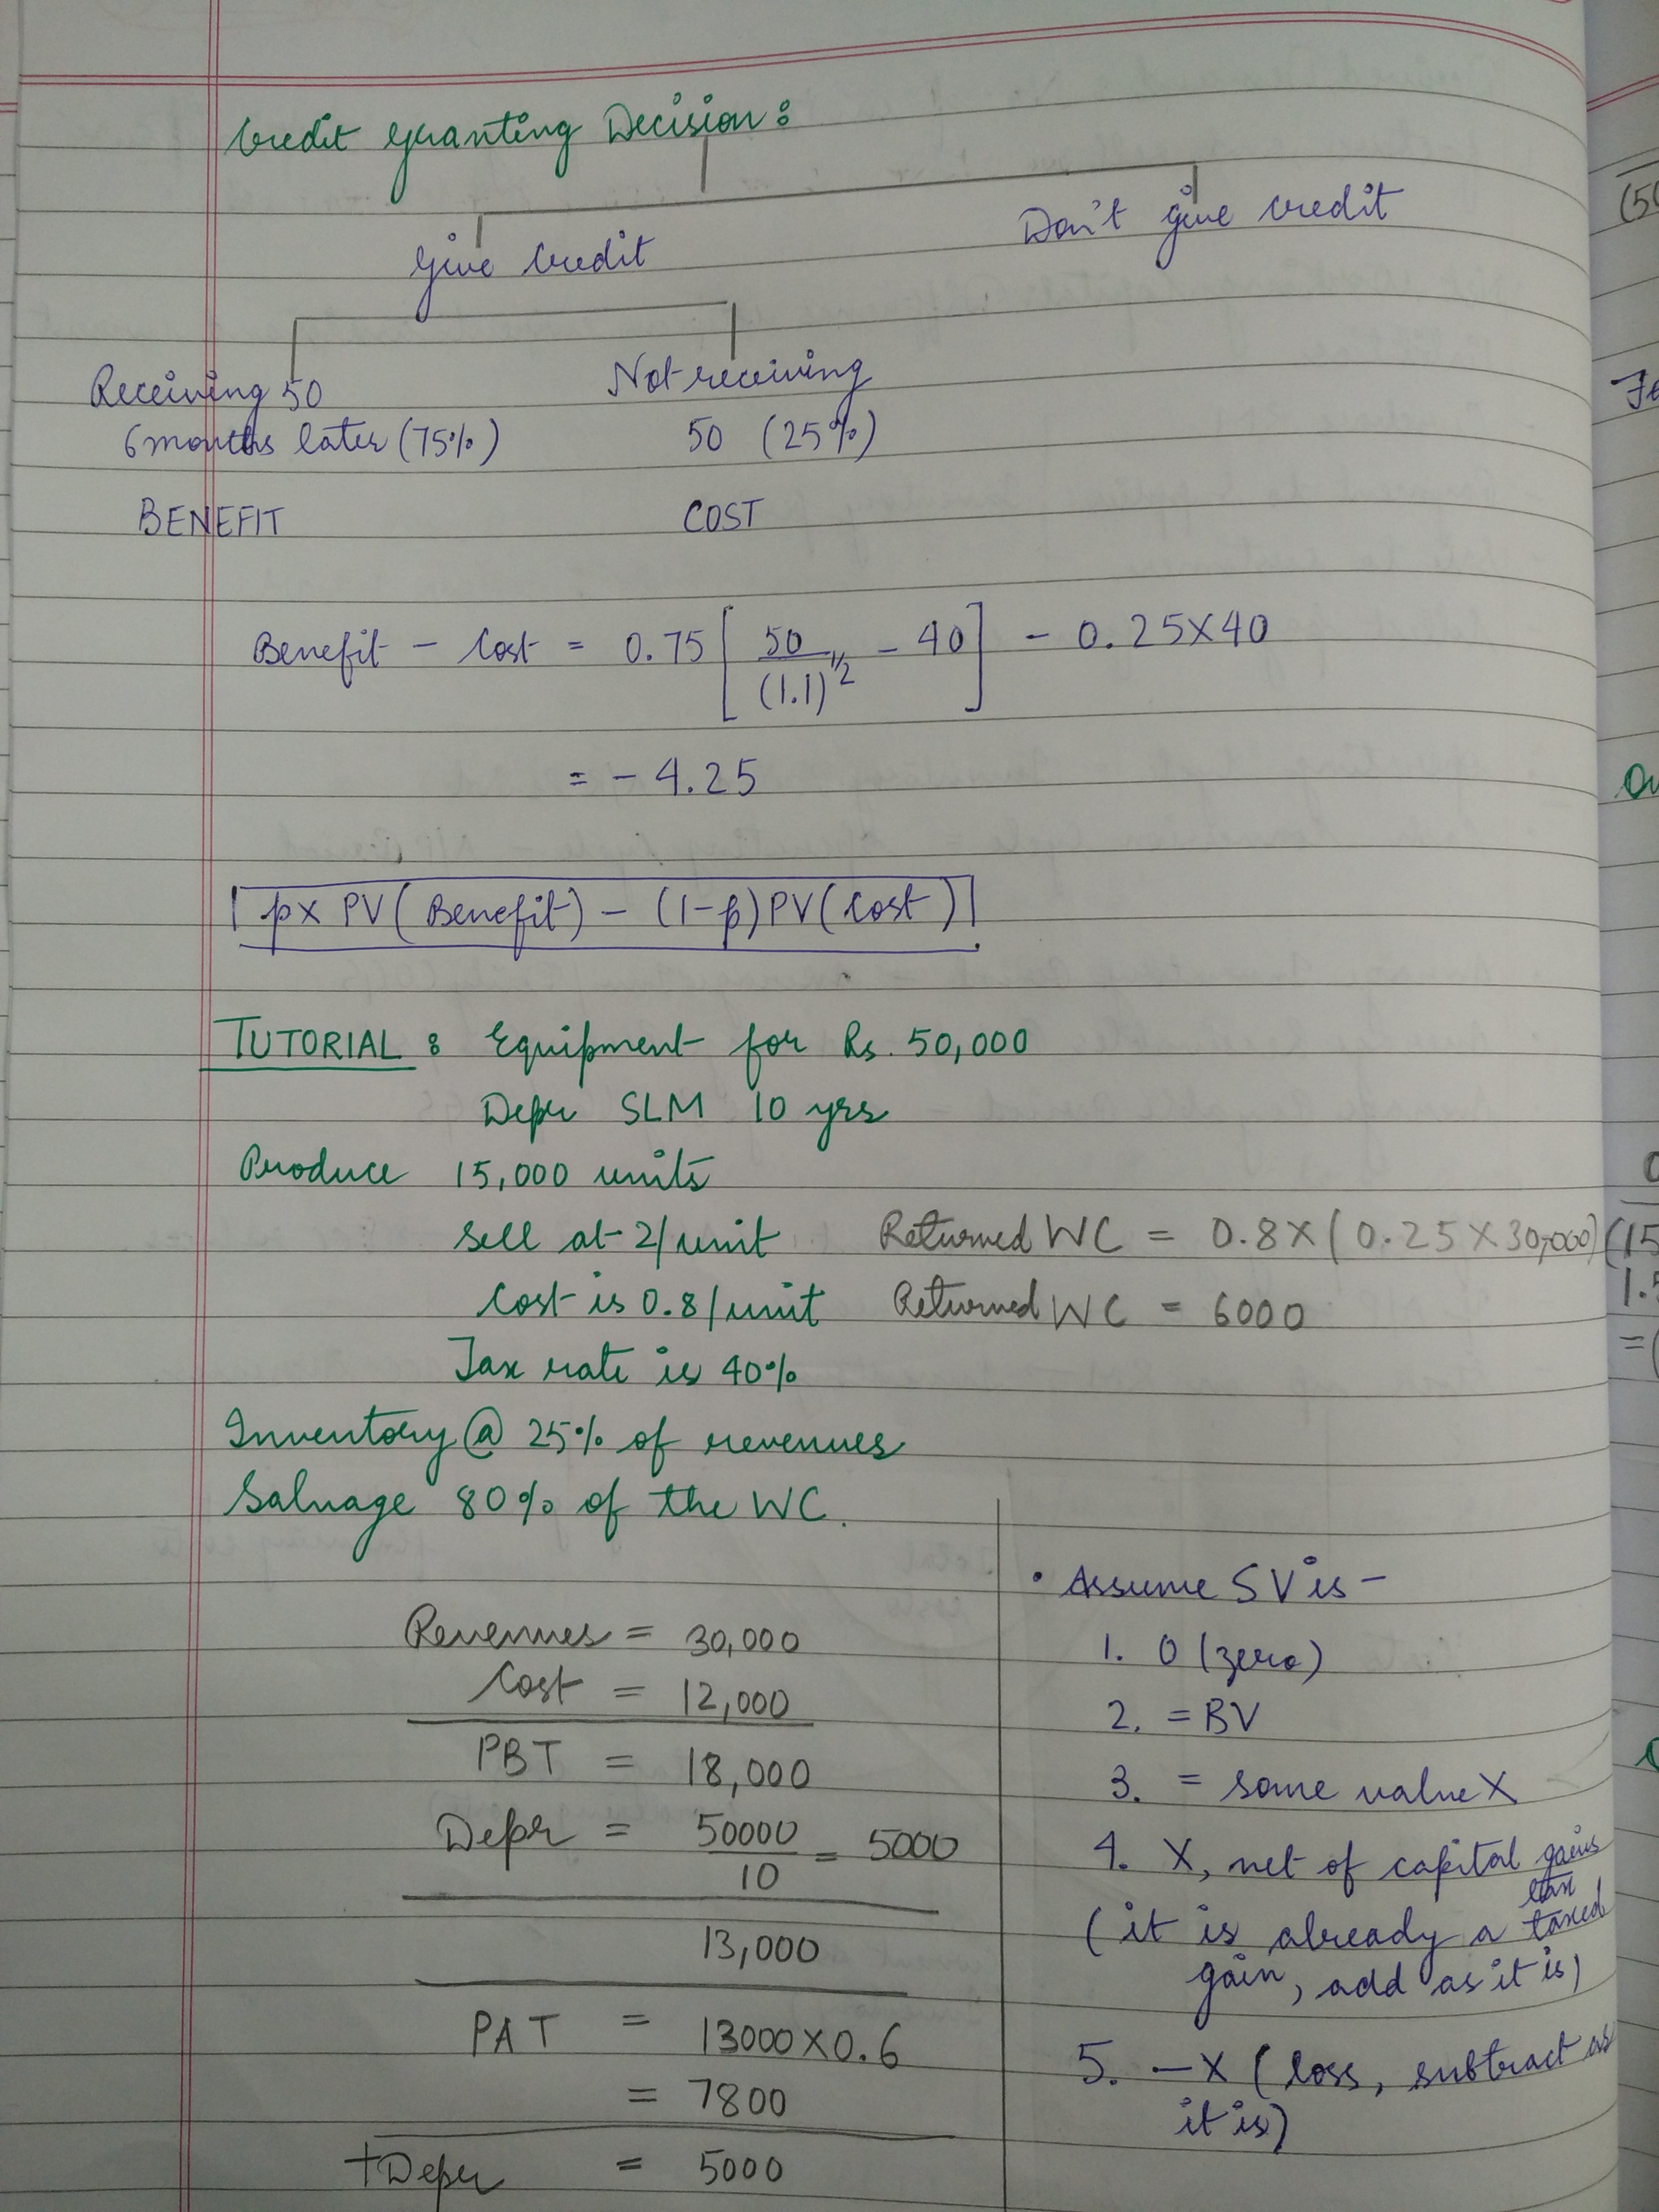 Credit Granting Decision:
Give Credit
Don't give credit
Receiving 50
6 months later (75%)
Not receiving
50 (25%)
BENEFIT
COST
Benefit - Cost = 0.75 [ 50/(1.1)^1/2 - 40 ] - 0.25×40
= - 4.25
p× PV(Benefit) - (1-p)PV(Cost)
TUTORIAL : Equipment for Rs. 50,000
Depr SLM 10 yrs
Produce 15,000 units
Sell at 2/unit
Returned WC = 0.8×(0.25×30,000)
Cost is 0.8/unit
Returned WC = 6000
Tax rate is 40%
Inventory @ 25% of revenues
Salvage 80% of the WC.
Revenues = 30,000
Cost = 12,000
PBT = 18,000
Depr = 50000/10 = 5000
13,000
PAT = 13000×0.6
= 7800
+Depr = 5000
• Assume SV is -
1. 0 (zero)
2. = BV
3. = some value X
4. X, net of capital gains
tax
(it is already a taxed
gain, add as it is)
5. -X (loss, subtract as
it is)